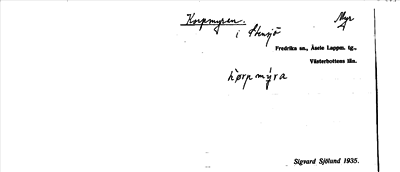 Korpmyren. Myr
i Stensjö
Fredrika sn., Åsele Lappm. tg.,
Västerbottens län.
kòrpmýra
Sigvard Sjölund 1935.